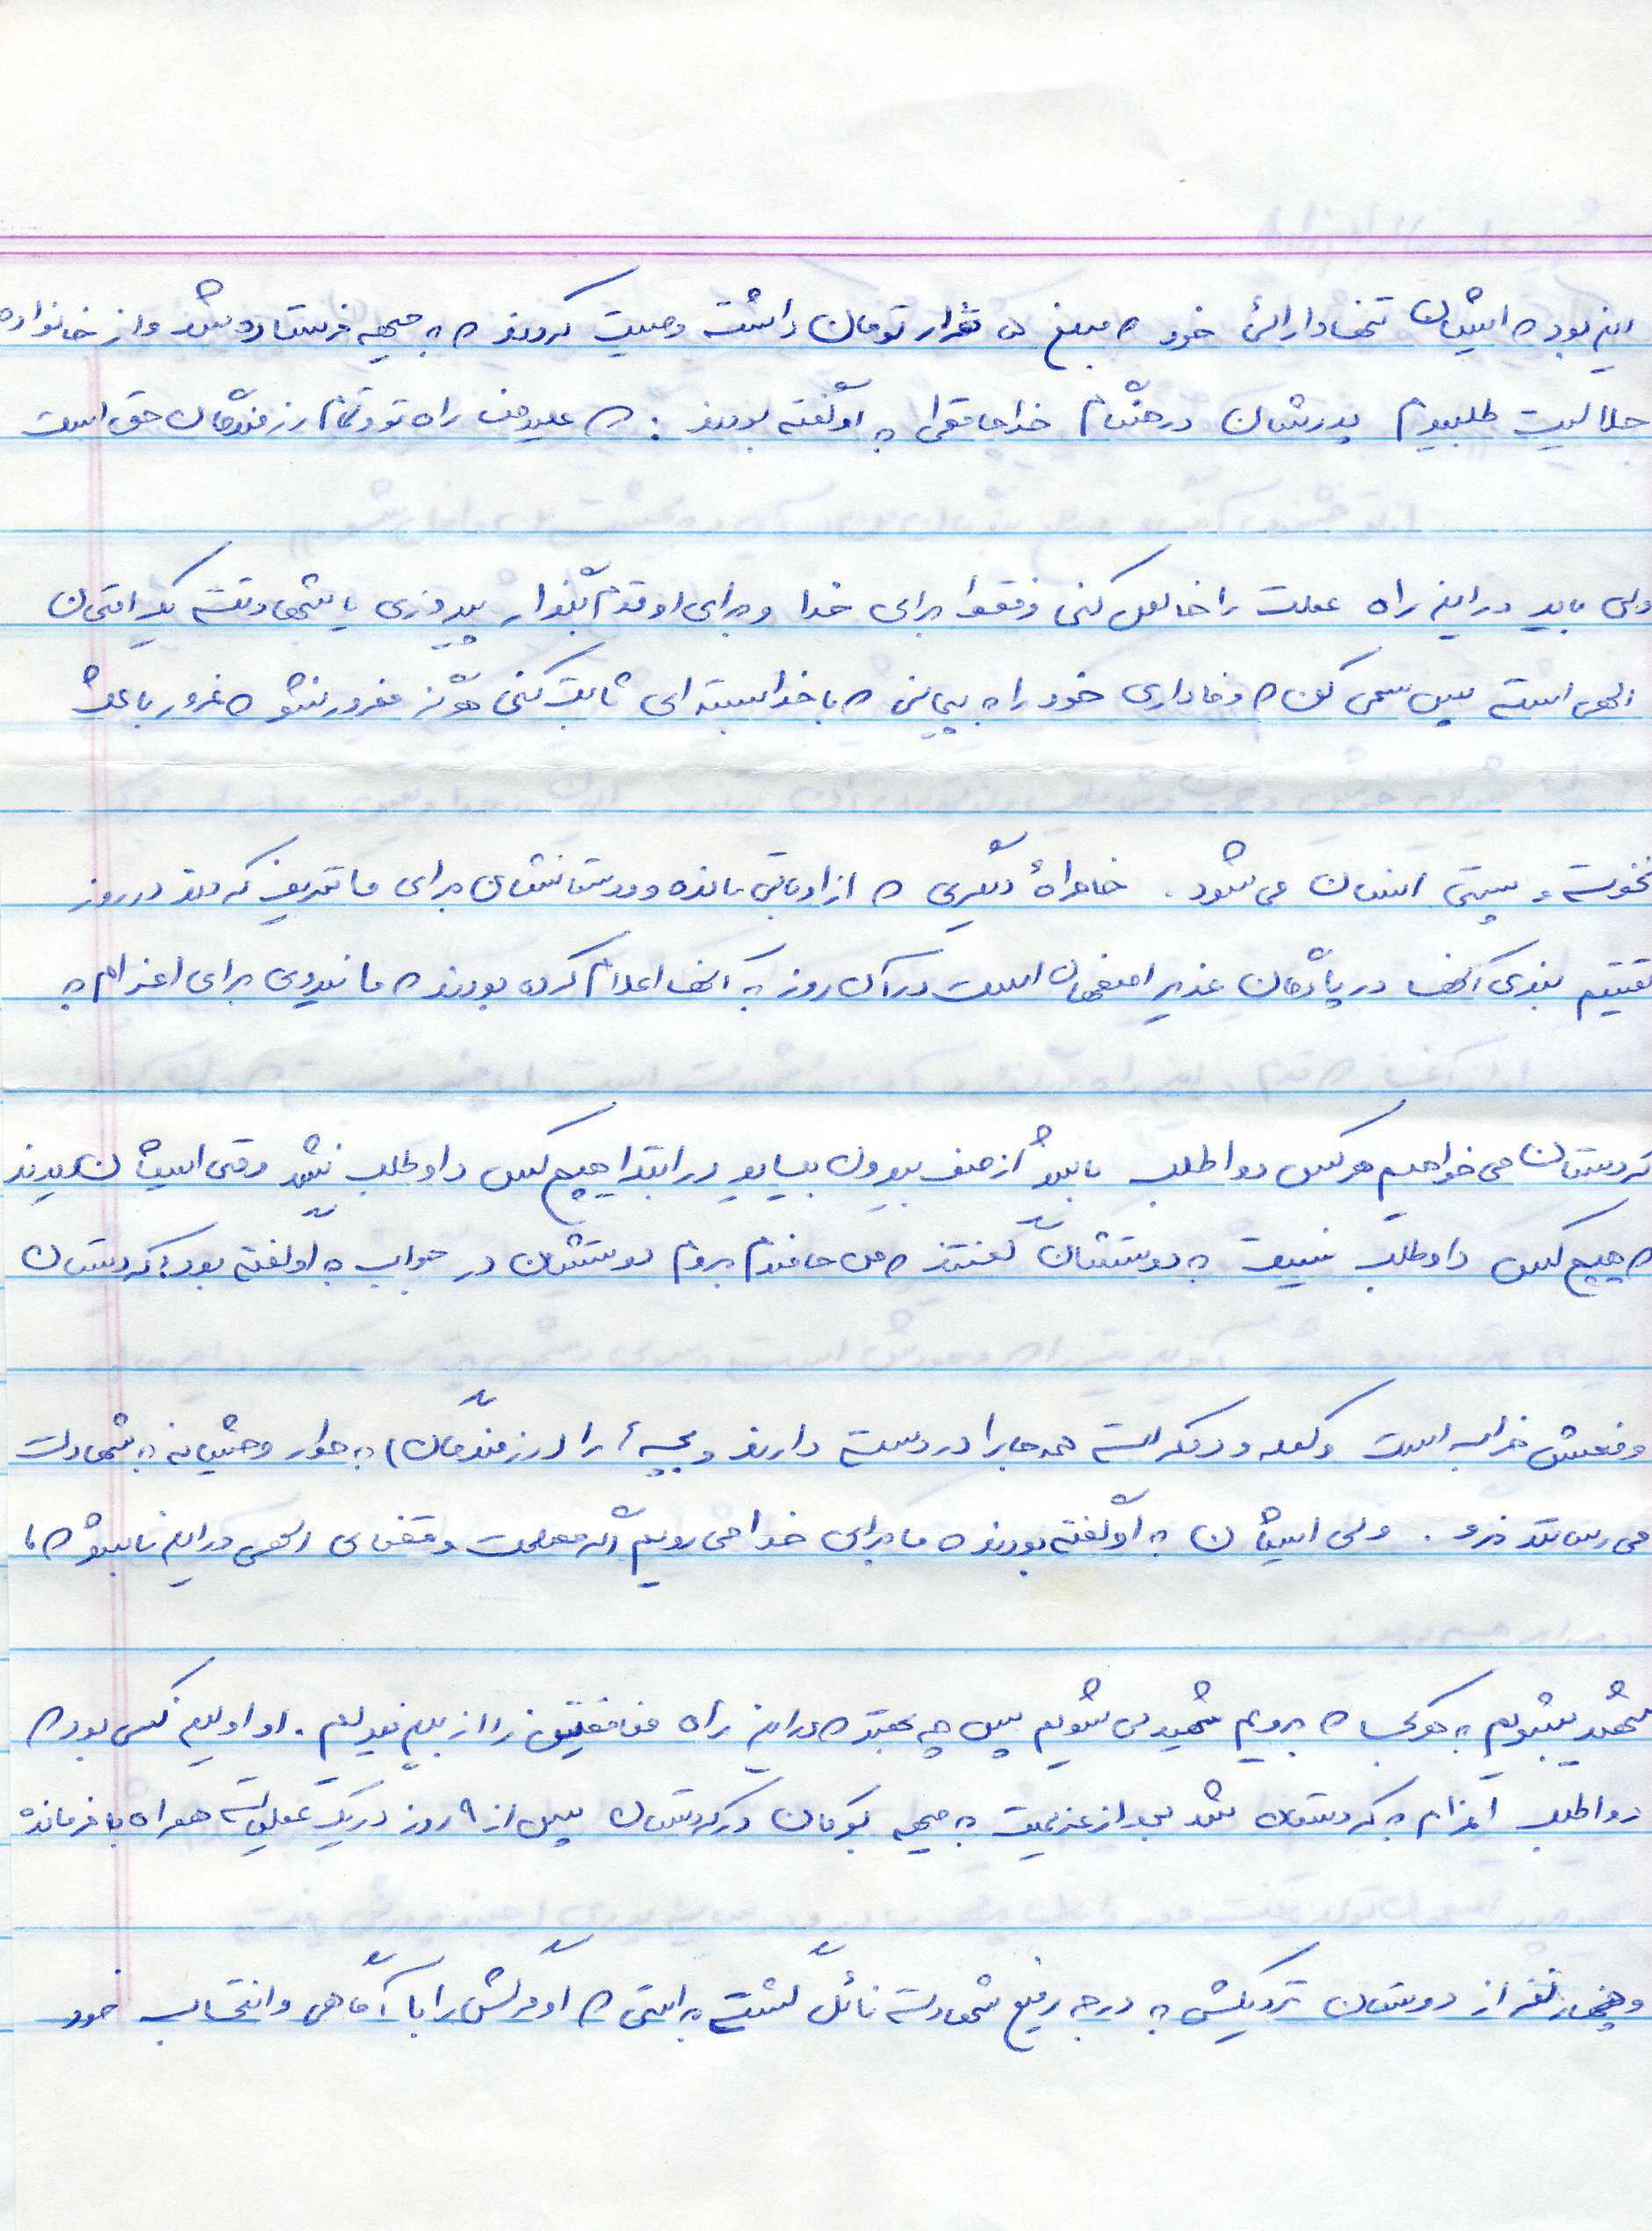 این بود که ایشان تنها دارائی خود که مبلغ ۵ هزار تومان داشت وصیت کردند که به جبهه فرستاده شد و از خانواده
حلالیت طلبیدم پدرشان در هنگام خداحافظی به او گفته بودند : که علیرضا راه تو و تمام رزمندگان حق است
ولی باید در این راه عملت را خالص کنی و فقط برای خدا و برای او قدم بگذار پیروزی یا شهادت یک امتحان
الهی است پس سعی کن که وفاداری خود را به پیمانی که با خدا بسته ای ثابت کنی هرگز مغرور نشو که غرور باعث
نخوت و پستی انسان می شود . خاطرهٔ دیگری که از او باقی مانده و دوستانشان برای ما تعریف کردند در روز
تقسیم بندی آنها در پادگان غدیر اصفهان است در آن روز به آنها اعلام کرده بودند که ما نیروی برای اعزام به
کردستان می خواهیم هرکس دواطلب باشد از صف بیرون بیاید در ابتدا هیچ کس داوطلب نشد وقتی ایشان دیدند
که هیچ کس داوطلب نیست به دوستشان گفتند که من حاضرم بروم دوستشان در جواب به او گفته بود: کردستان
وضعش خراب است و کومله و دمکرات همه جا را در دست دارند و بچه ها را (رزمندگان) به طور وحشیانه به شهادت
می رسانند نرو . ولی ایشان به او گفته بودند که ما برای خدا می رویم اگر مصلحت و قضای الهی در این باشد که ما
شهید بشویم به هر کجا که برویم شهید می شویم پس چه بهتر که در این راه منافقین را از بین ببریم . او اولین کسی بود که
دواطلب اعزام به کردستان شد بعد از عزیمت به جبهه بوکان در کردستان پس از ۹ روز در یک عملیات همراه با فرمانده
و چهار نفر از دوستان نزدیکش به درجه رفیع شهادت نائل گشت به راستی که او مرگش را با آگاهی و انتخاب خود